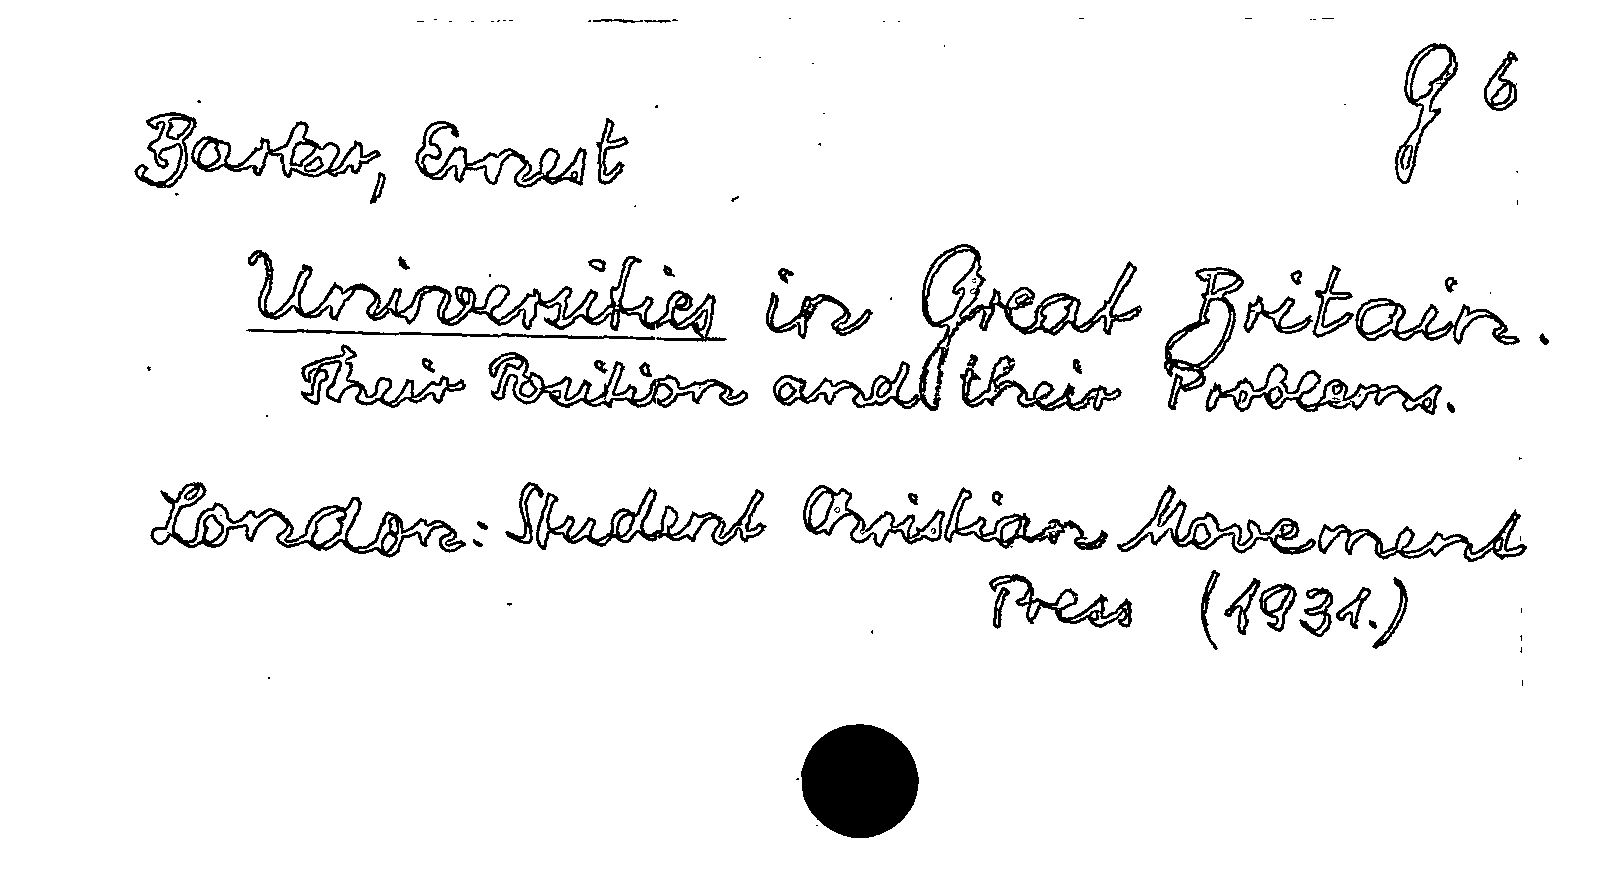 G 6
Barker, Ernest
Universities in Great Britain.
Their Position and their Problems.
London: Student Christian Movement
Press (1931.)